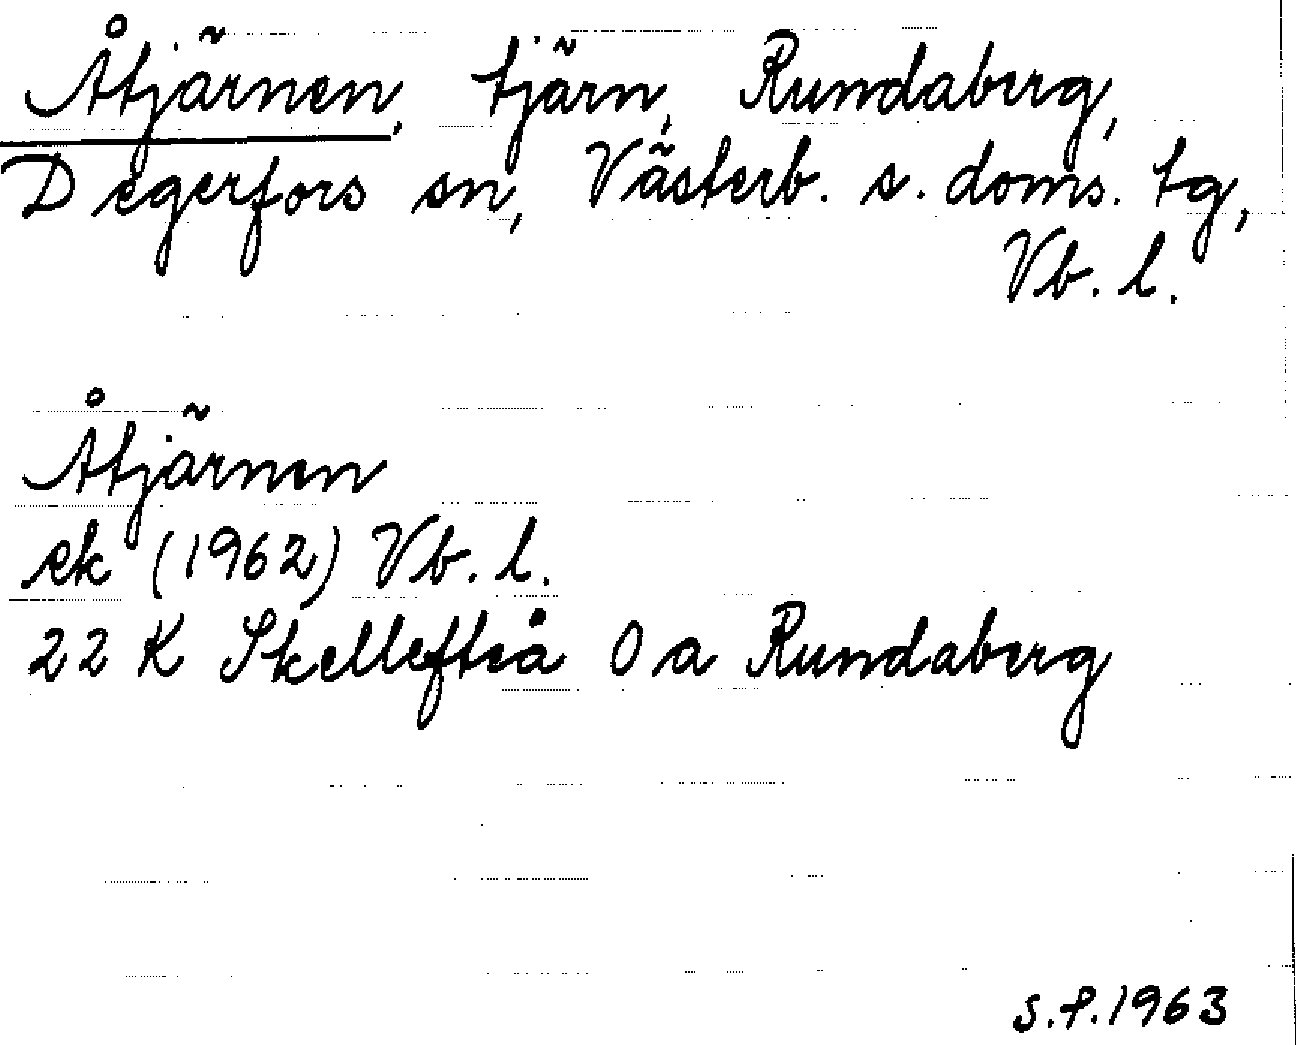 Åtjärnen, tjärn, Rundaberg,
Degerfors sn, Västerb. s. doms. tg,
Vb. l.
Åtjärnen
ek (1962) Vb. l.
22 K Skellefteå 0 a Rundaberg
S.P.1963